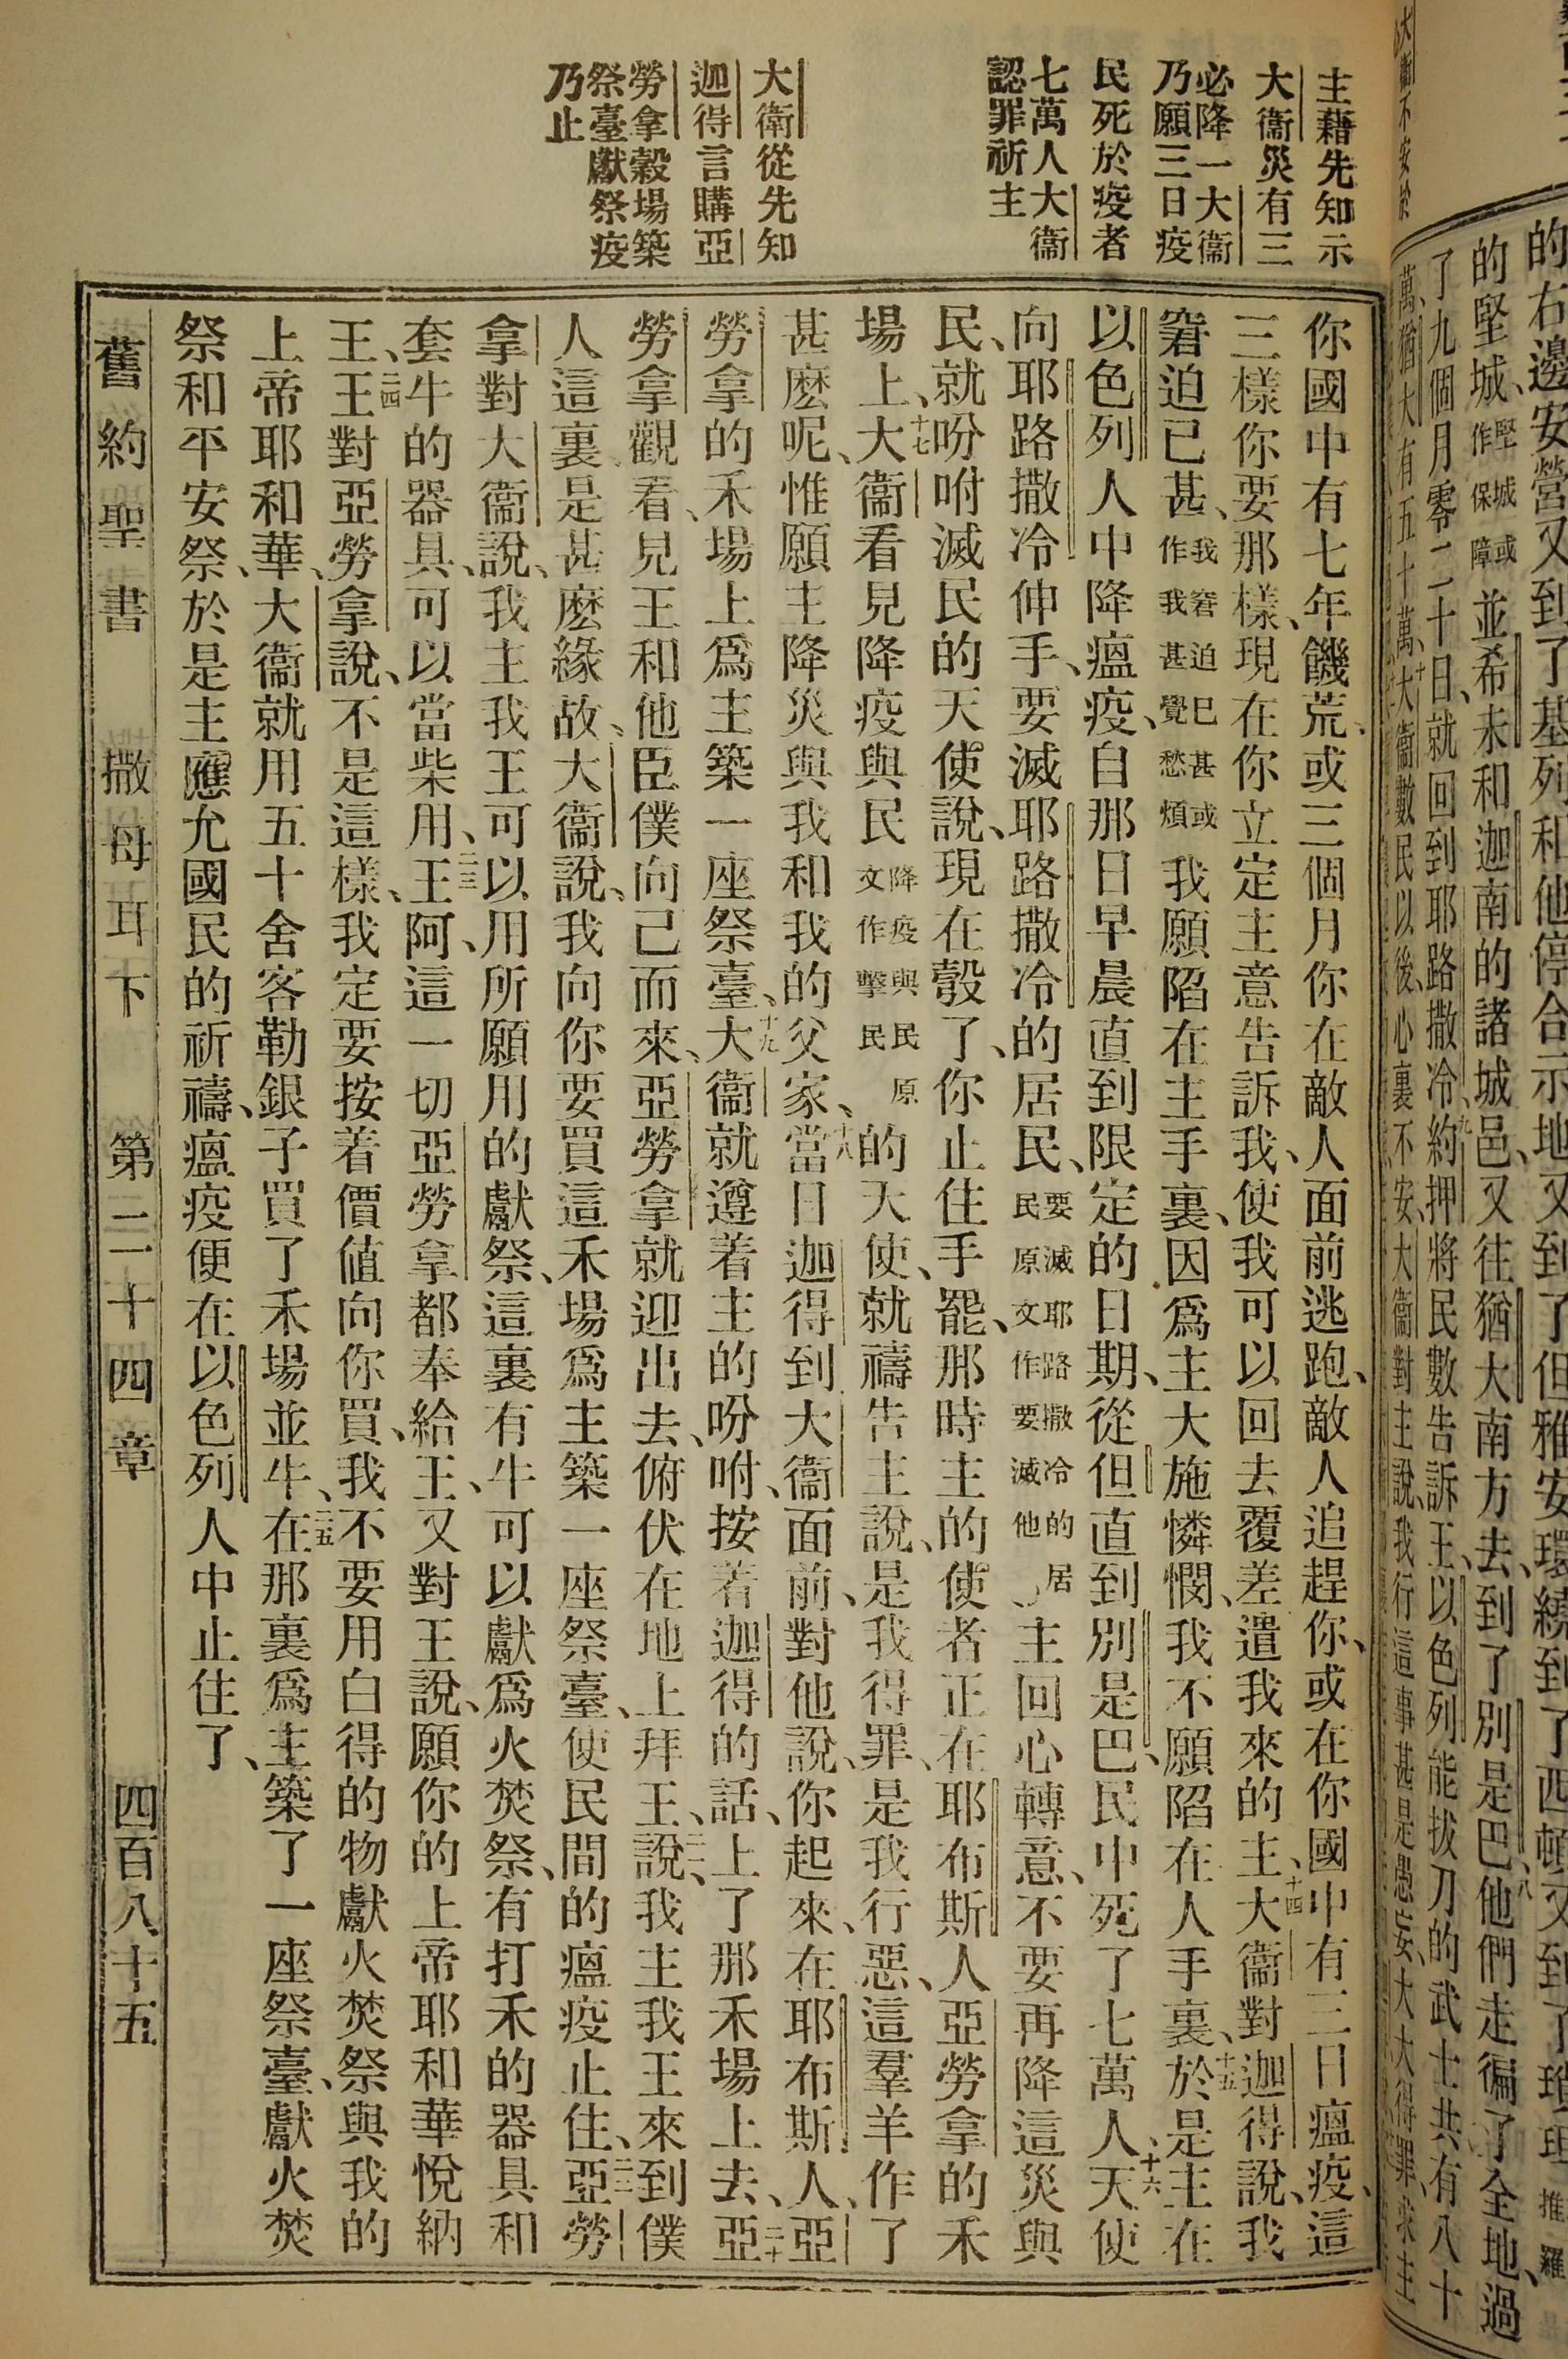 的右邊安營又到了基列和他停合示地又到了但雅安環繞到了西頓又到了
的堅城、堅城或作保障並希未和迦南的諸城邑、又往猶大南方去、到了別是巴八他們走徧了全地、過
了九個月零二十日、就回到耶路撒冷、九約押將民數告訴王、以色列能拔刀的武士共有八十
萬、猶大有五十萬、十大衞數民以後、心裏不安、大衞對主說、我行這事甚是愚妄、大大得罪、求主
大衞不安於
主藉先知示
大衞災有三
必降一大衞
乃願三日疫
民死於疫者
七萬人大衞
認罪祈主
大衞從先知
迦得言購亞
勞拿穀場築
祭臺獻祭疫
乃止
你國中有七年饑荒、或三個月你在敵人面前逃跑、敵人追趕你、或在你國中有三日瘟疫、這
三樣你要那樣、現在你立定主意告訴我、使我可以回去覆差遣我來的主、十四大衞對迦得說、我
窘迫已甚、我窘迫已甚或作我甚覺愁煩我願陷在主手裏、因爲主大施憐憫、我不願陷在人手裏、十五於是主在
以色列人中降瘟疫、自那日早晨直到限定的日期、從但直到別是巴、民中死了七萬人、十六天使
向耶路撒冷伸手、要滅耶路撒冷的居民、要滅耶路撒冷的居民原文作要滅他主回心轉意、不要再降這災與
民、就吩咐滅民的天使說、現在彀了、你止住手罷、那時主的使者正在耶布斯人亞勞拿的禾
場上、十七大衞看見降疫與民降疫與民原文作擊民的天使、就禱告主說、是我得罪、是我行惡、這羣羊作了
甚麽呢、惟願主降災與我和我的父家、十八當日迦得到大衞面前、對他說、你起來、在耶布斯人、亞
勞拿的禾場上爲主築一座祭臺、十九大衞就遵着主的吩咐、按着迦得的話、上了那禾場上去、二十亞
勞拿觀看、見王和他臣僕向己而來、亞勞拿就迎出去、俯伏在地上拜王、說、二一我主我王來到僕
人這裏、是甚麽緣故、大衞說、我向你要買這禾場爲主築一座祭臺、使民間的瘟疫止住、二二亞勞
拿對大衞說、我主我王可以用所願用的獻祭、這裏有牛可以獻爲火焚祭、有打禾的器具和
套牛的器具、可以當柴用、二三王阿、這一切亞勞拿都奉給王、又對王說、願你的上帝耶和華悅納
王、二四王對亞勞拿說、不是這樣、我定要按着價値向你買、我不要用白得的物獻火焚祭與我的
上帝耶和華、大衞就用五十舍客勒銀子買了禾場並牛、二五在那裏爲主築了一座祭臺、獻火焚
祭和平安祭、於是主應允國民的祈禱、瘟疫便在以色列人中止住了、
舊約聖書 撒母耳下 第二十四章 四百八十五